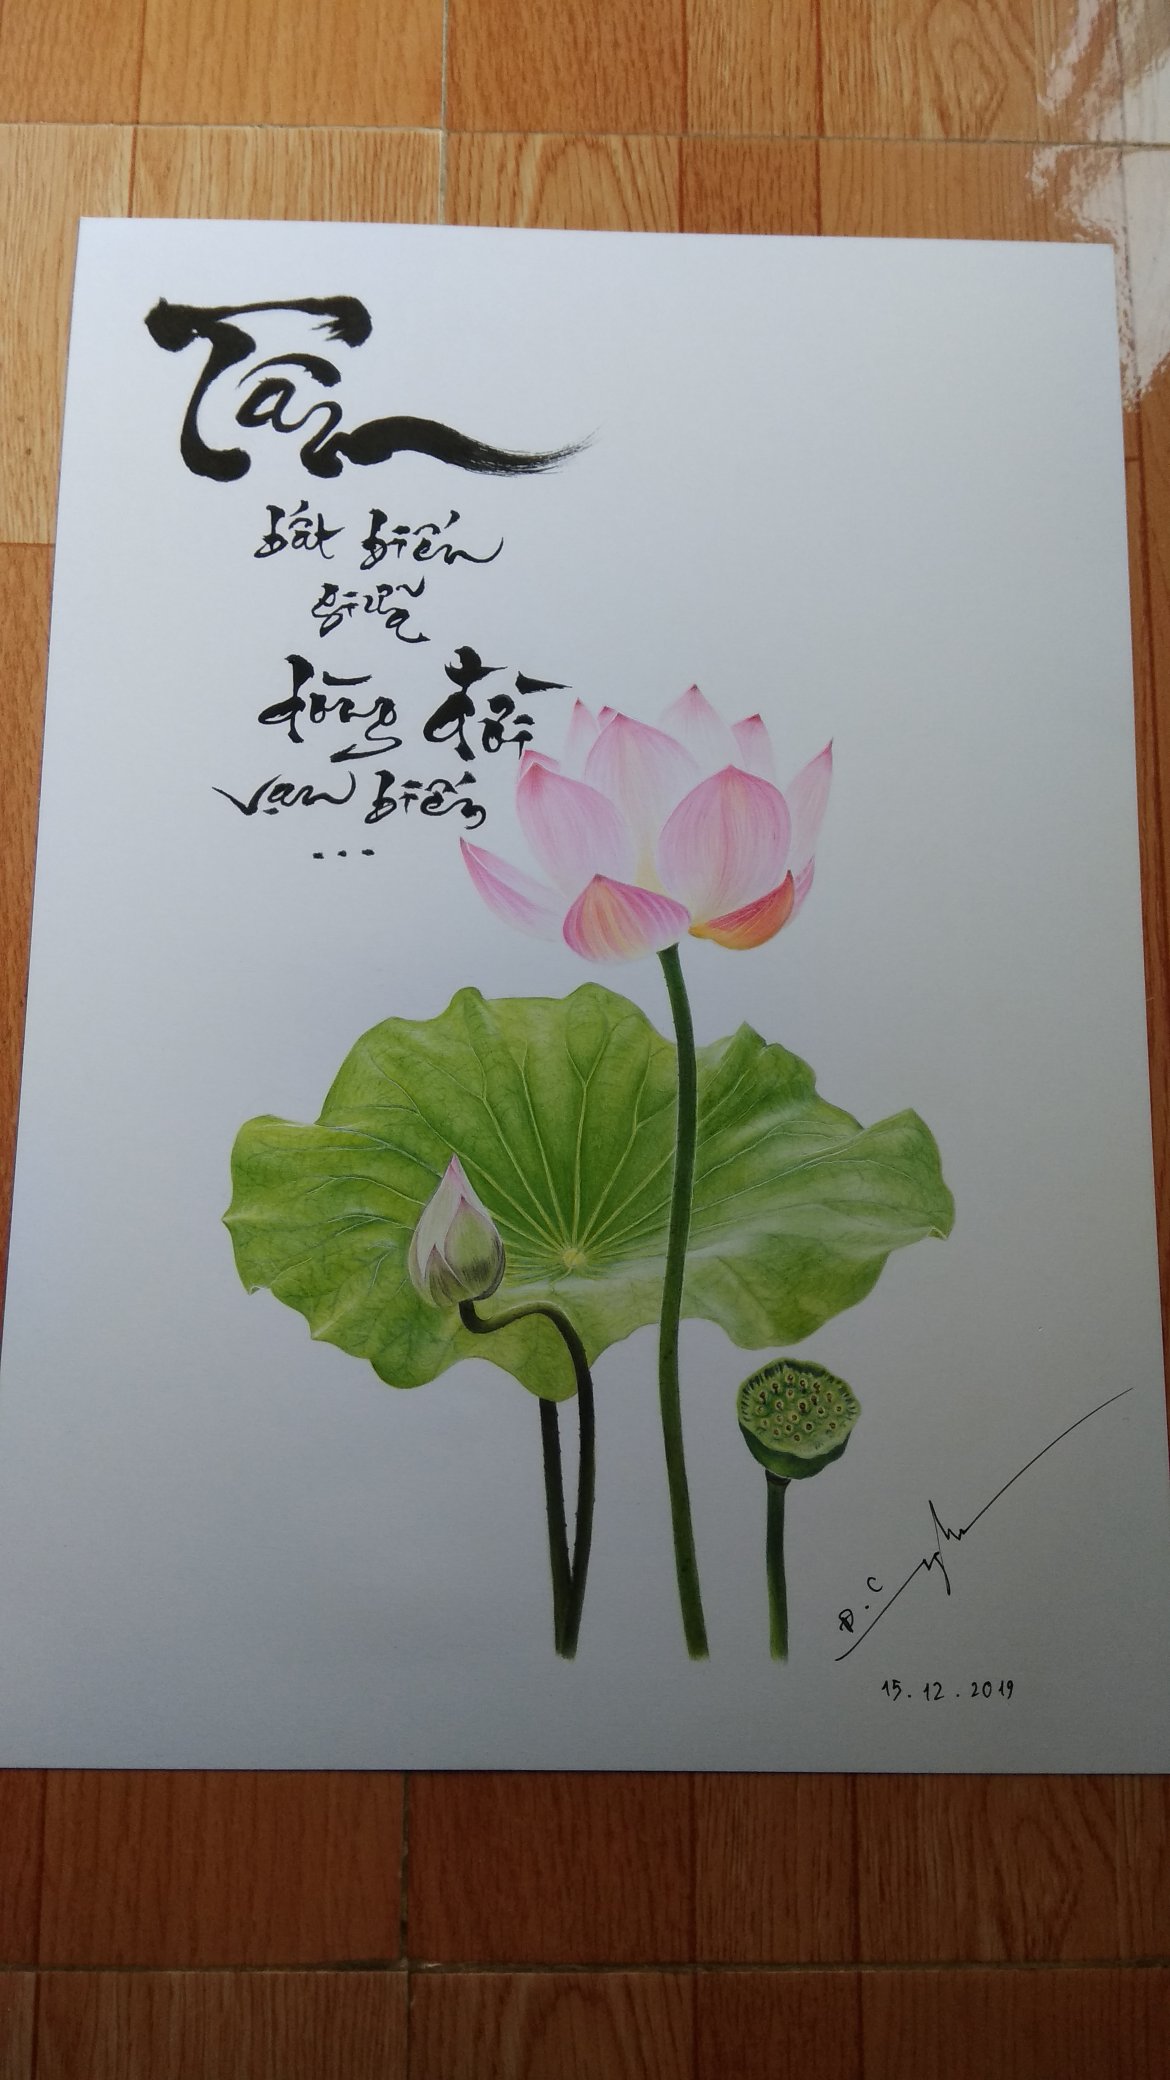 Tâm
bất biến
giữa
dòng đời
vạn biến
...
Đ.C
15.12.2019